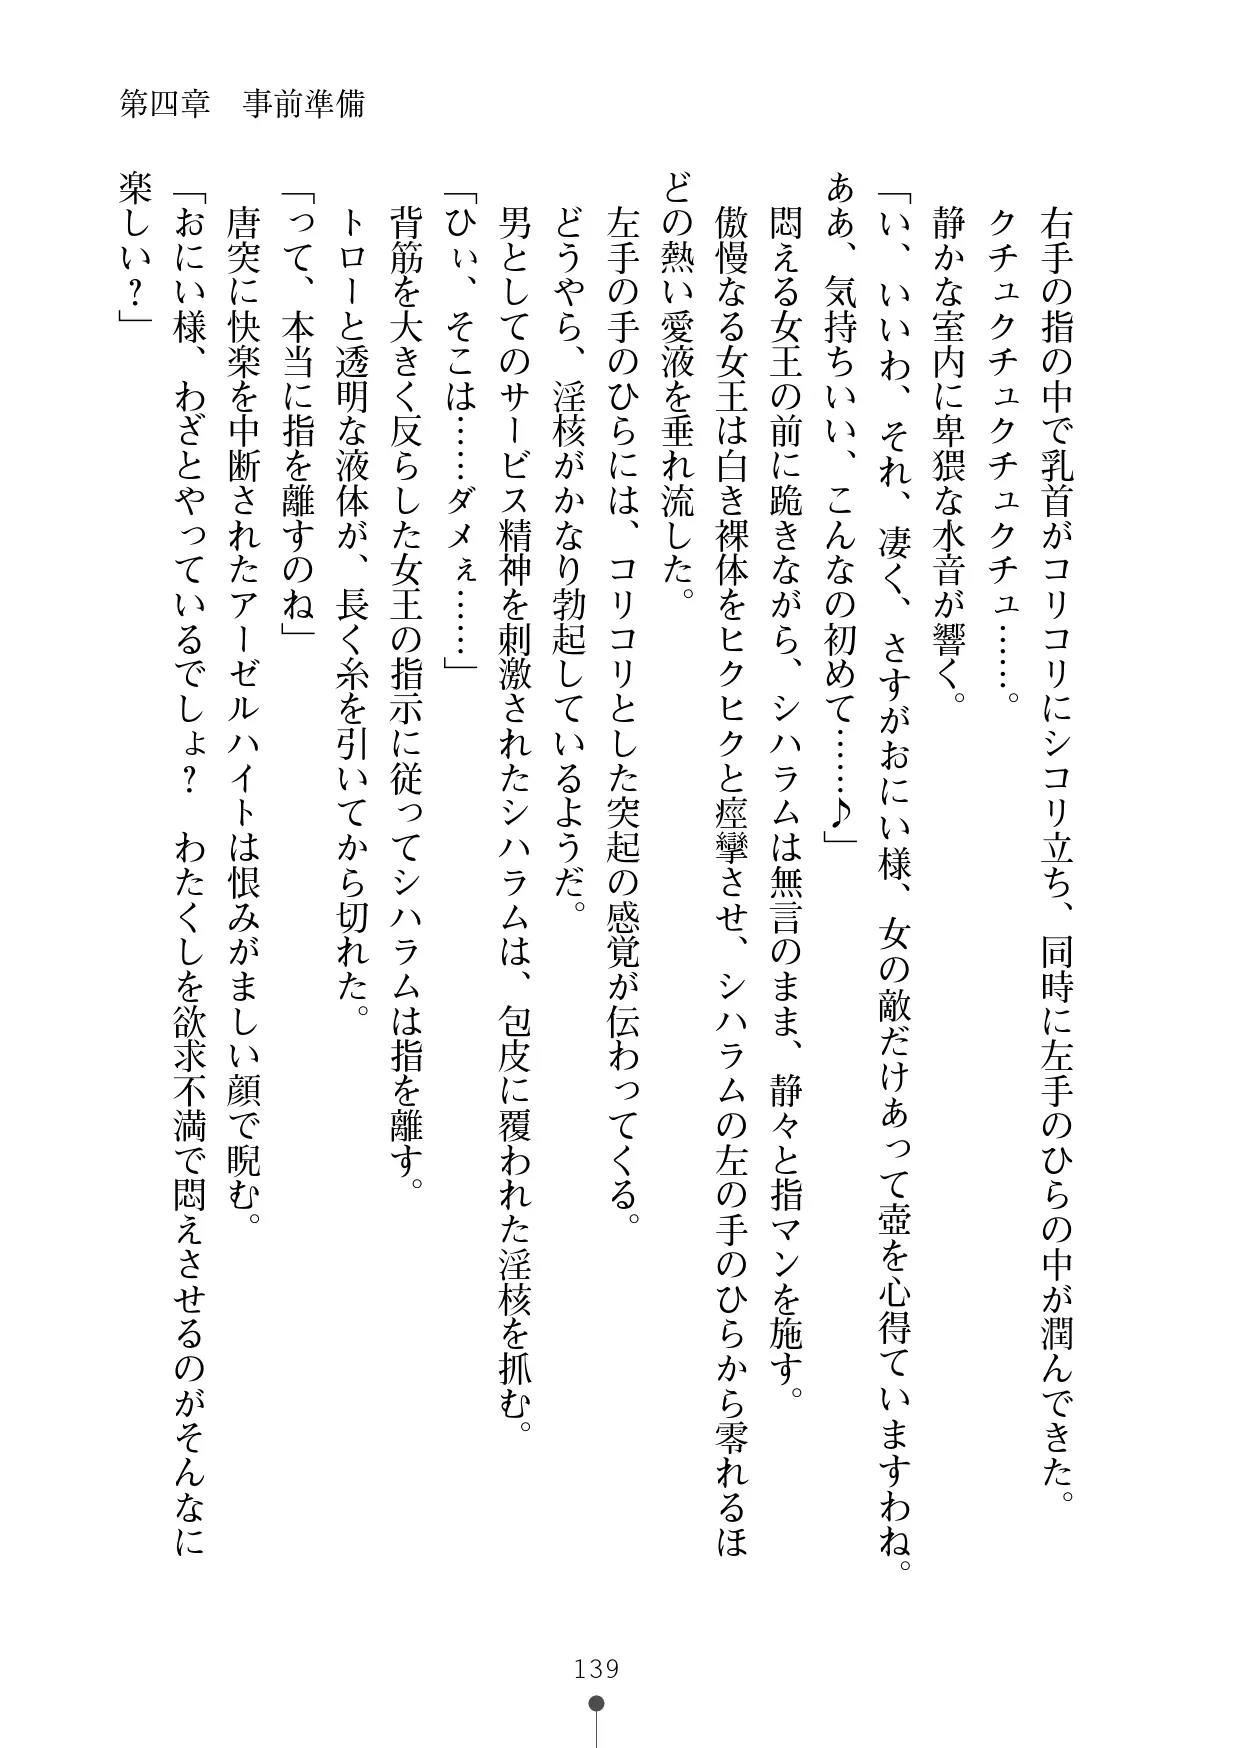 第四章　事前準備
右手の指の中で乳首がコリコリにシコリ立ち、同時に左手のひらの中が潤んできた。
クチュクチュクチュクチュ……。
静かな室内に卑猥な水音が響く。
「い、いいわ、それ、凄く、さすがおにい様、女の敵だけあって壺を心得ていますわね。
ああ、気持ちいい、こんなの初めて……♪」
悶える女王の前に跪きながら、シハラムは無言のまま、静々と指マンを施す。
傲慢なる女王は白き裸体をヒクヒクと痙攣させ、シハラムの左の手のひらから零れるほ
どの熱い愛液を垂れ流した。
左手の手のひらには、コリコリとした突起の感覚が伝わってくる。
どうやら、淫核がかなり勃起しているようだ。
男としてのサービス精神を刺激されたシハラムは、包皮に覆われた淫核を抓む。
「ひぃ、そこは……ダメぇ……」
背筋を大きく反らした女王の指示に従ってシハラムは指を離す。
トローと透明な液体が、長く糸を引いてから切れた。
「って、本当に指を離すのね」
唐突に快楽を中断されたアーゼルハイトは恨みがましい顔で睨む。
「おにい様、わざとやっているでしょ？　わたくしを欲求不満で悶えさせるのがそんなに
楽しい？」
139